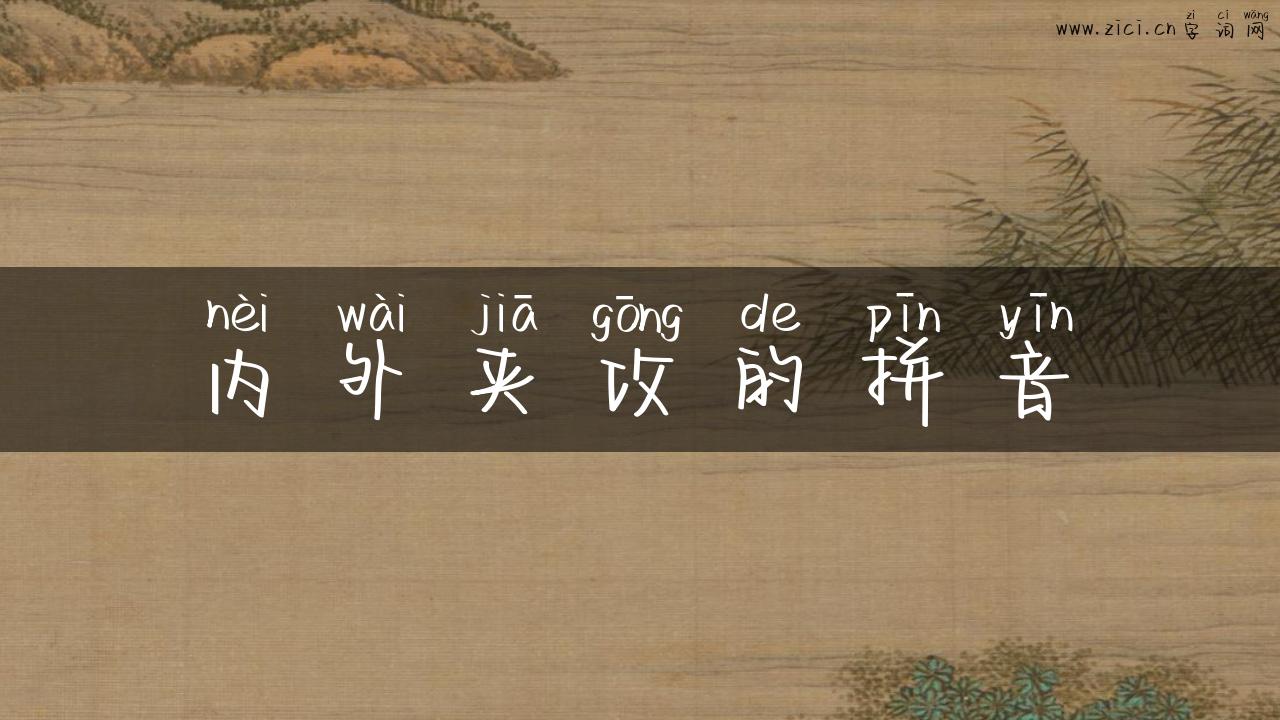 zì cí wǎng
www.zici.cn 字词网
nèi wài jiā gōng de pīn yīn
内外夹攻的拼音